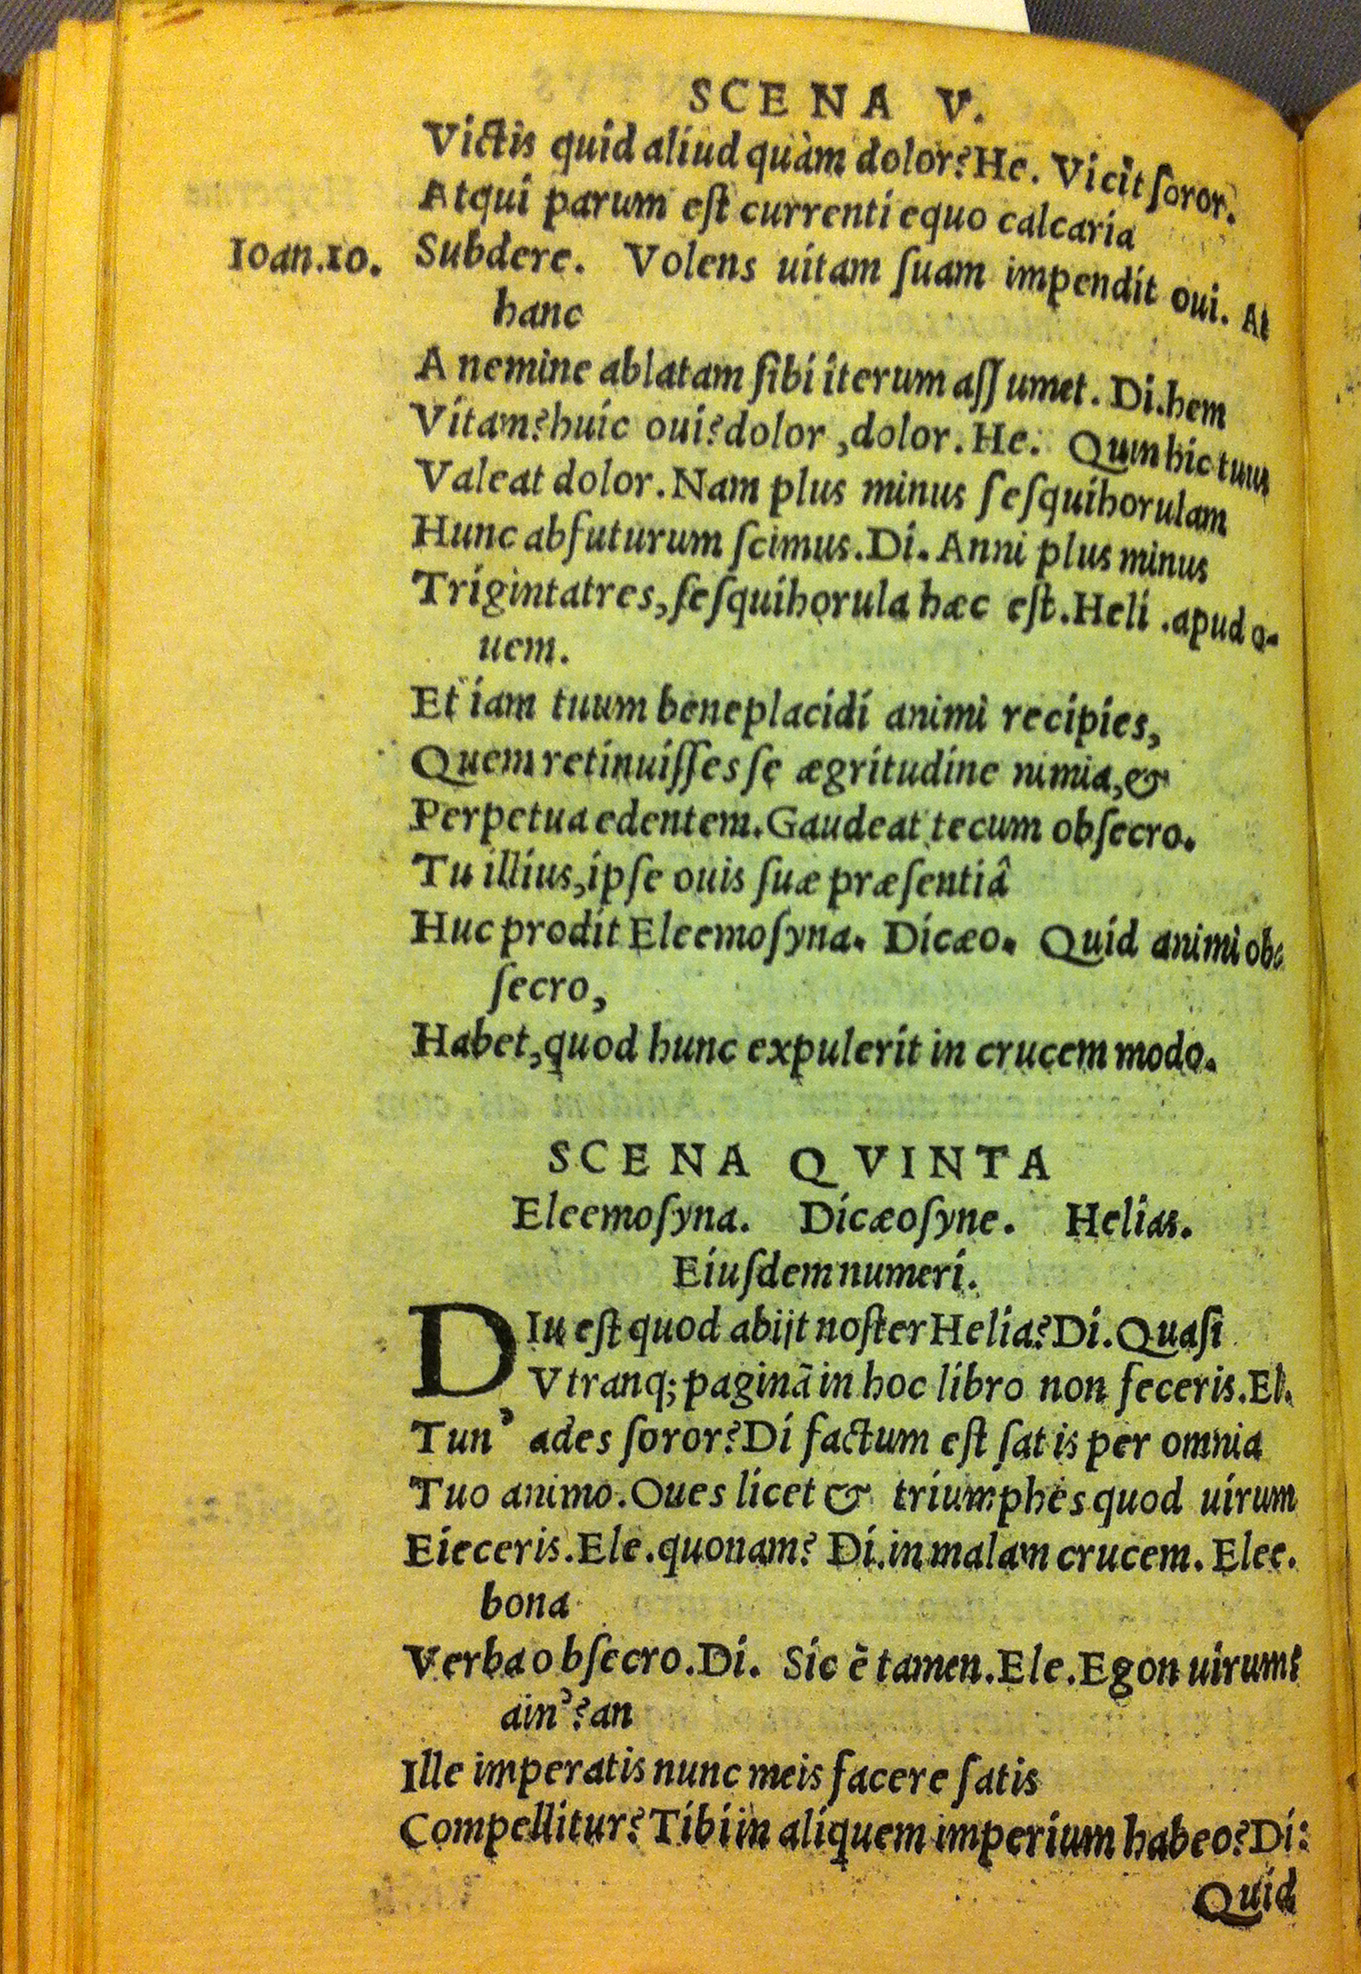 SCENA V.
Victis quid aliud quàm dolor? He. Vicit ſoror.
Atqui parum eſt currenti equo calcaria
Ioan.10. Subdere. Volens uitam ſuam impendit oui. At
hanc
A nemine ablatam ſibi iterum aſſumet. Di. hem
Vitam? huic oui? dolor, dolor. He. Quin hic tuus
Valeat dolor. Nam plus minus ſeſquihorulam
Hunc abfuturum ſcimus. Di. Anni plus minus
Trigintatres, ſeſquihorula hæc eſt. Heli. apud o-
uem.
Et iam tuum beneplacidi animi recipies,
Quem retinuiſſes ſe ægritudine nimia, &
Perpetua edentem. Gaudeat tecum obſecro.
Tu illius, ipſe ouis ſuæ præſentiâ
Huc prodit Eleemoſyna. Dicæo. Quid animi ob-
ſecro,
Habet, quod hunc expulerit in crucem modo.
SCENA QVINTA
Eleemoſyna. Dicæoſyne. Helias.
Eiuſdem numeri.
DIu eſt quod abijt noſter Helia? Di. Quaſi
Vtranq; paginã in hoc libro non feceris. El.
Tun' ades ſoror? Di factum eſt ſatis per omnia
Tuo animo. Oues licet & triumphes quod uirum
Eieceris. Ele. quonam? Di. in malam crucem. Elee.
bona
Verba obſecro. Di. Sic ẽ tamen. Ele. Egon uirum?
ain'? an
Ille imperatis nunc meis facere ſatis
Compellitur? Tibi in aliquem imperium habeo? Di:
Quid